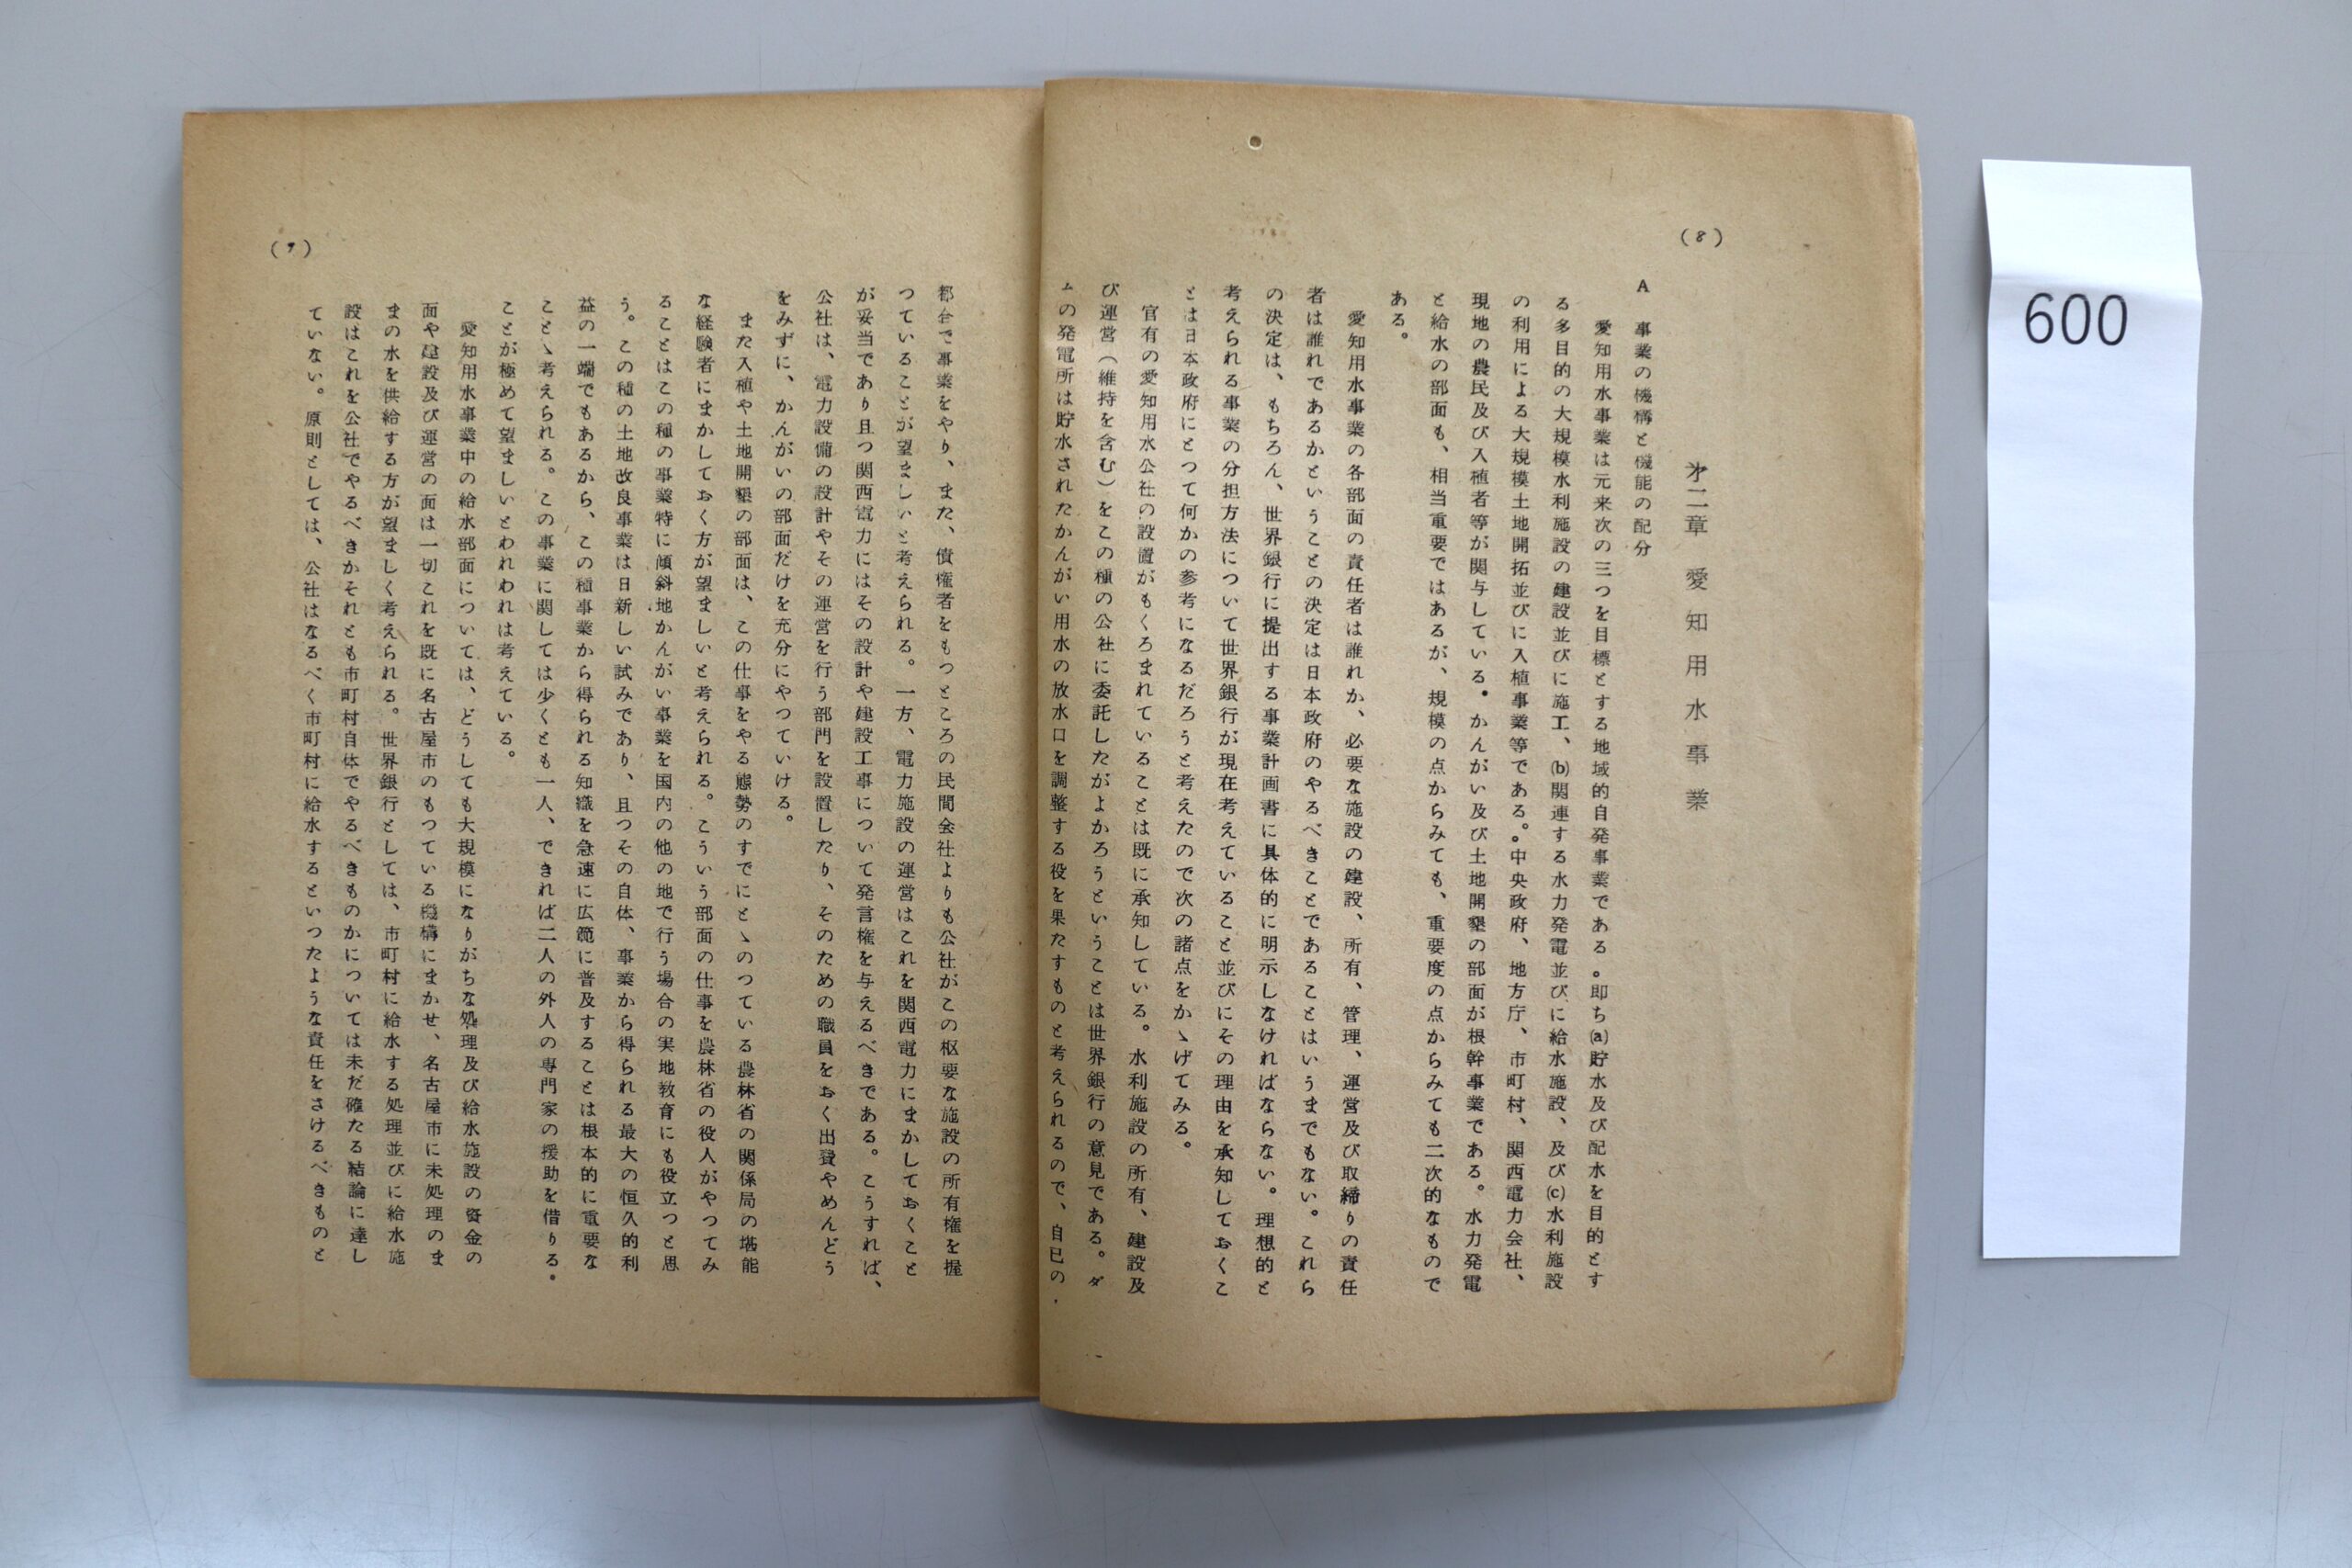 (8)
才二章 愛知用水事業
A 事業の機構と機能の配分
愛知用水事業は元来次の三つを目標とする地域的自発事業である。即ち(a)貯水及び配水を目的とす
る多目的の大規模水利施設の建設並びに施工、(b)関連する水力発電並びに給水施設、及び(c)水利施設
の利用による大規模土地開拓並びに入植事業等である。。中央政府、地方庁、市町村、関西電力会社、
現地の農民及び入植者等が関与している。かんがい及び土地開墾の部面が根幹事業である。水力発電
と給水の部面も、相当重要ではあるが、規模の点からみても、重要度の点からみても二次的なもので
ある。
愛知用水事業の各部面の責任者は誰れか、必要な施設の建設、所有、管理、運営及び取締りの責任
者は誰れであるかということの決定は日本政府のやるべきことであることはいうまでもない。これら
の決定は、もちろん、世界銀行に提出する事業計画書に具体的に明示しなければならない。理想的と
考えられる事業の分担方法について世界銀行が現在考えていること並びにその理由を承知しておくこ
とは日本政府にとつて何かの参考になるだろうと考えたので次の諸点をかゝげてみる。
官有の愛知用水公社の設置がもくろまれていることは既に承知している。水利施設の所有、建設及
び運営(維持を含む)をこの種の公社に委託したがよかろうということは世界銀行の意見である。ダ
ムの発電所は貯水されたかんがい用水の放水口を調整する役を果たすものと考えられるので、自己の
都合で事業をやり、また、債権者をもつところの民間会社よりも公社がこの枢要な施設の所有権を握
つていることが望ましいと考えられる。一方、電力施設の運営はこれを関西電力にまかしておくこと
が妥当であり且つ関西電力にはその設計や建設工事について発言権を与えるべきである。こうすれば、
公社は、電力設備の設計やその運営を行う部門を設置したり、そのための職員をおく出費やめんどう
をみずに、かんがいの部面だけを充分にやつていける。
また入植や土地開墾の部面は、この仕事をやる態勢のすでにとゝのつている農林省の関係局の堪能
な経験者にまかしておく方が望ましいと考えられる。こういう部面の仕事を農林省の役人がやつてみ
ることはこの種の事業特に傾斜地かんがい事業を国内の他の地で行う場合の実地教育にも役立つと思
う。この種の土地改良事業は日新しい試みであり、且つその自体、事業から得られる最大の恒久的利
益の一端でもあるから、この種事業から得られる知識を急速に広範に普及することは根本的に重要な
ことゝ考えられる。この事業に関しては少くとも一人、できれば二人の外人の専門家の援助を借りる。
ことが極めて望ましいとわれわれは考えている。
愛知用水事業中の給水部面については、どうしても大規模になりがちな処理及び給水施設の資金の
面や建設及び運営の面は一切これを既に名古屋市のもつている機構にまかせ、名古屋市に未処理のま
まの水を供給する方が望ましく考えられる。世界銀行としては、市町村に給水する処理並びに給水施
設はこれを公社でやるべきかそれとも市町村自体でやるべきものかについては未だ確たる結論に達し
ていない。原則としては、公社はなるべく市町村に給水するといつたような責任をさけるべきものと
(9)
600